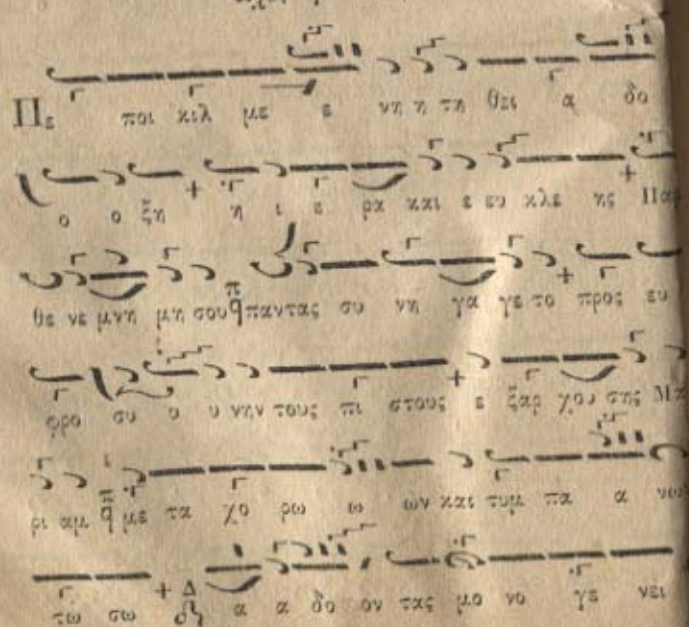 Πε ποι κιλ με ε νη η τη θει α δο
ο ο ξη η ι ε ρα και ε ευ κλε ης Παρ
θε νε μνη μη σου παντας συ νη γα γε το προς ευ
φρο συ υ υ νην τους πι στους ε ξαρ χου σης Μα
ρι αμ με τα χο ρω ω ων και τυμ πα α νων
τω σω Δ α α δο ον τας μο νο γε νει